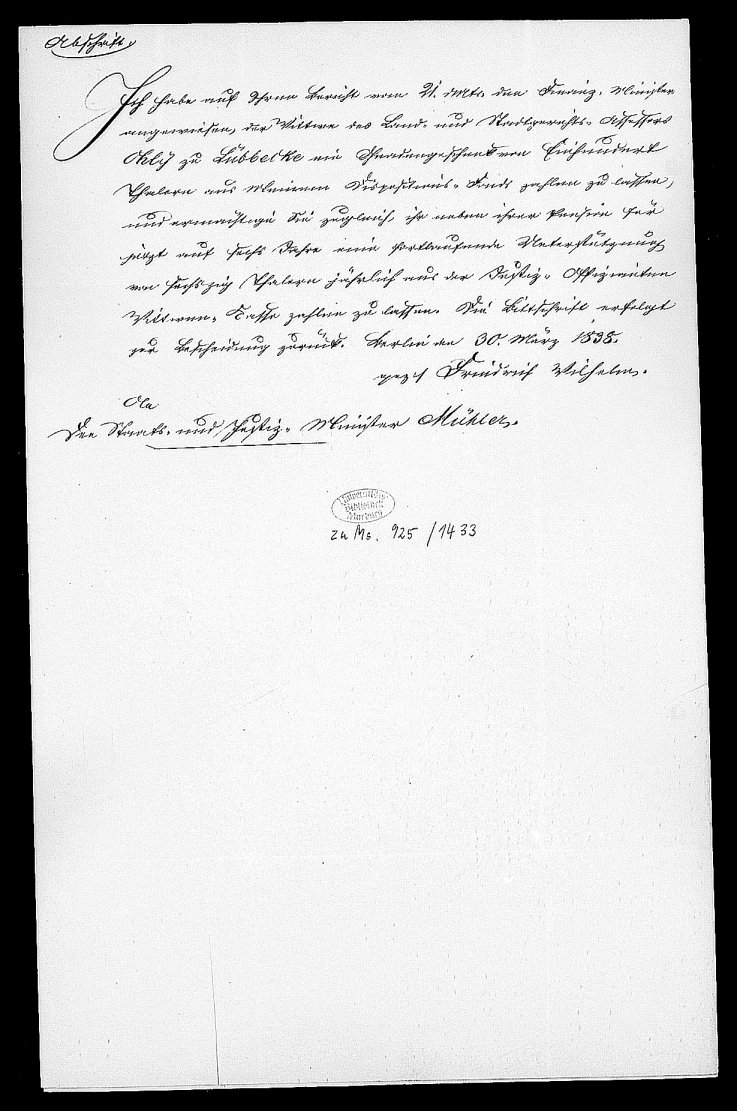 Abschrift.
Ich habe auf Ihren Bericht vom 21. d. Mts. den Finanz-Minister
angewiesen, der Wittwe des Land- und Stadtgerichts-Assessors
Ohly zu Lübbecke ein Gnadengeschenk von Einhundert
Thalern aus Meinem Dispositions-Fonds zahlen zu lassen,
und ermächtige Sie zugleich, ihr neben ihrer Pension für
jetzt auf sechs Jahre eine fortlaufende Unterstützung
von sechszig Thalern jährlich aus der Justiz-Offizianten
Wittwen-Kasse zahlen zu lassen. Die Bittschrift erfolgt
zur Bescheidung zurück. Berlin den 30. März 1838.
gez. Friedrich Wilhelm.
An
den Staats- und Justiz-Minister Mühler.
Universitäts
Bibliothek
Marburg
zu Ms. 925/1433